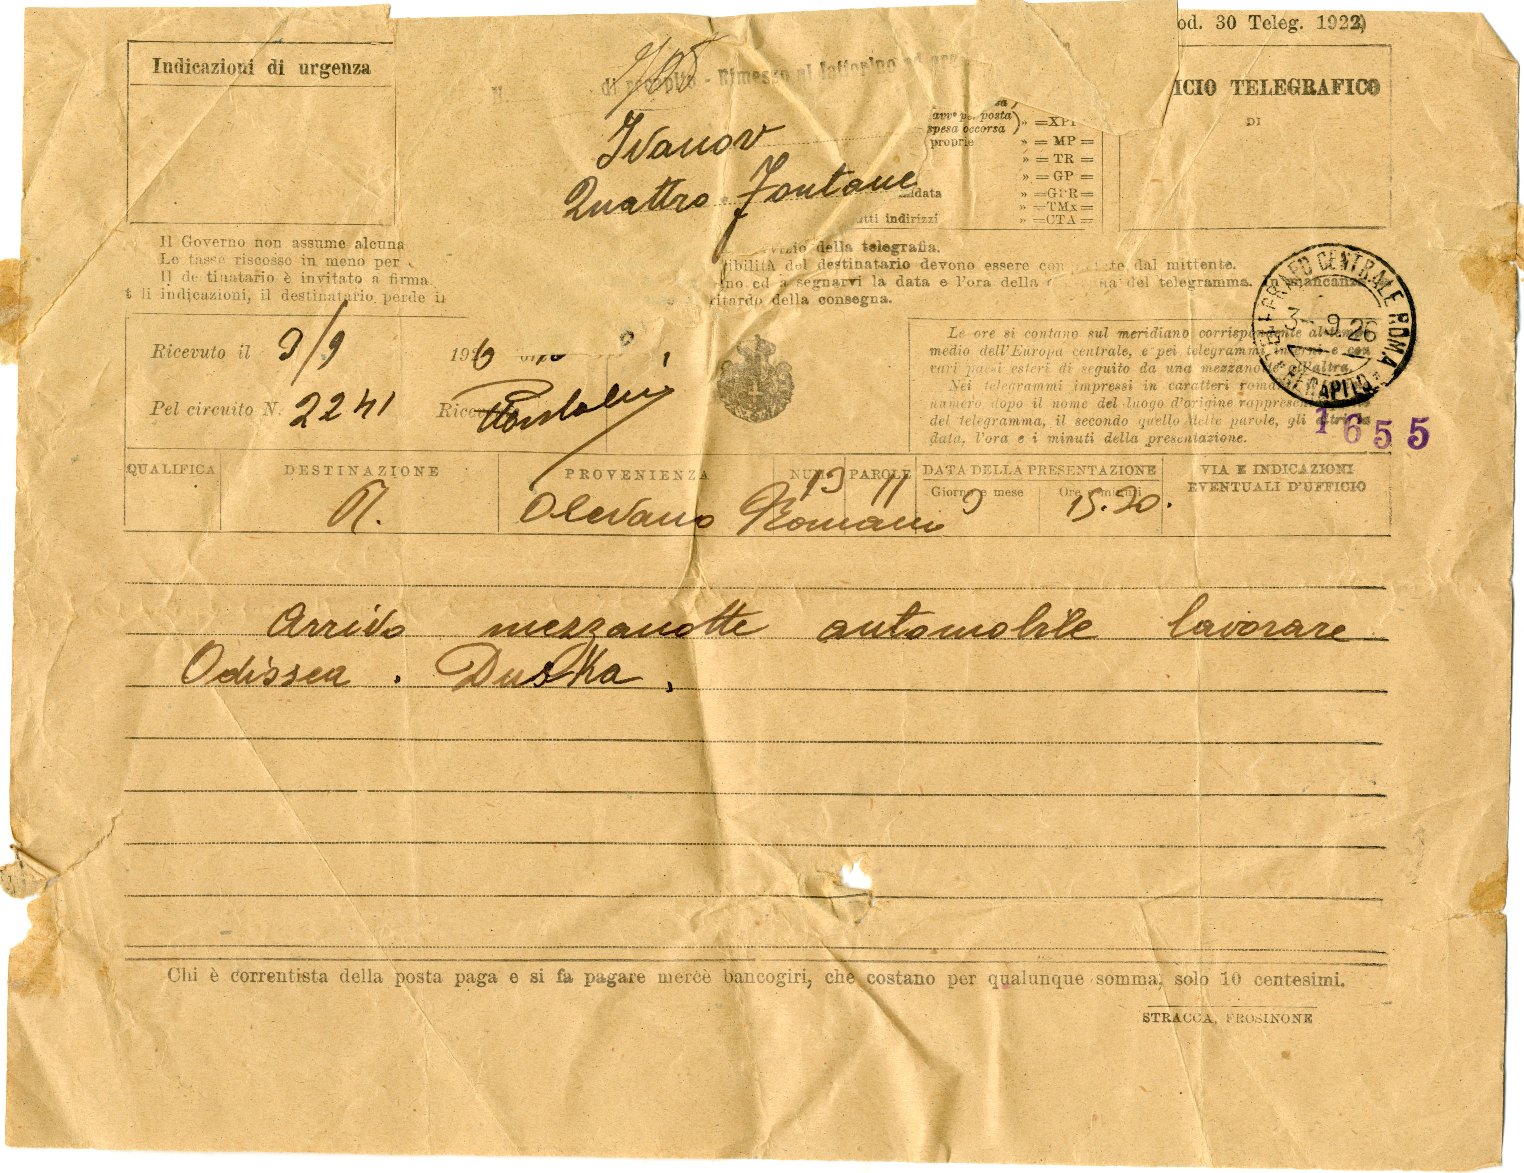 od. 30 Teleg. 1922)
Indicazioni di urgenza
di recapito - Rimesso al fattorino ad ore
ICIO TELEGRAFICO
DI
Ivanov
Quattro Fontane
avvº per posta
spesa occorsa) » =XP
proprie » = MP =
» = TR =
» = GP =
» =GPR=
» =TMx=
utti indirizzi » =CTA=
Il Governo non assume alcuna
vizio della telegrafia.
Le tasse riscosse in meno per
ibilità del destinatario devono essere dal mittente.
Il destinatario è invitato a firma
no ed a segnarvi la data e l'ora della del telegramma. In mancanza
t li indicazioni, il destinatario perde il
ritardo della consegna.
Ricevuto il 3/9 1926
Pel circuito N. 2241
Le ore si contano sul meridiano corrispondente al tempo
medio dell'Europa centrale, e pei telegrammi interni e con
vari paesi esteri di seguito da una mezzanotte all'altra.
Nei telegrammi impressi in caratteri romani
numero dopo il nome del luogo d'origine rappresenta
del telegramma, il secondo quello delle parole, gli altri la
data, l'ora e i minuti della presentazione.
TELEGRAFO CENTRALE ROMA
3- 9 26
RECAPITO
1655
QUALIFICA DESTINAZIONE PROVENIENZA NUM. PAROLE DATA DELLA PRESENTAZIONE VIA E INDICAZIONI
Giorno e mese Ore e minuti EVENTUALI D'UFFICIO
R. Olevano Romano 13 11 3 15.20.
Arrivo mezzanotte automobile lavorare
Odissea. Duska.
Chi è correntista della posta paga e si fa pagare mercè bancogiri, che costano per qualunque somma, solo 10 centesimi.
STRACCA, FROSINONE